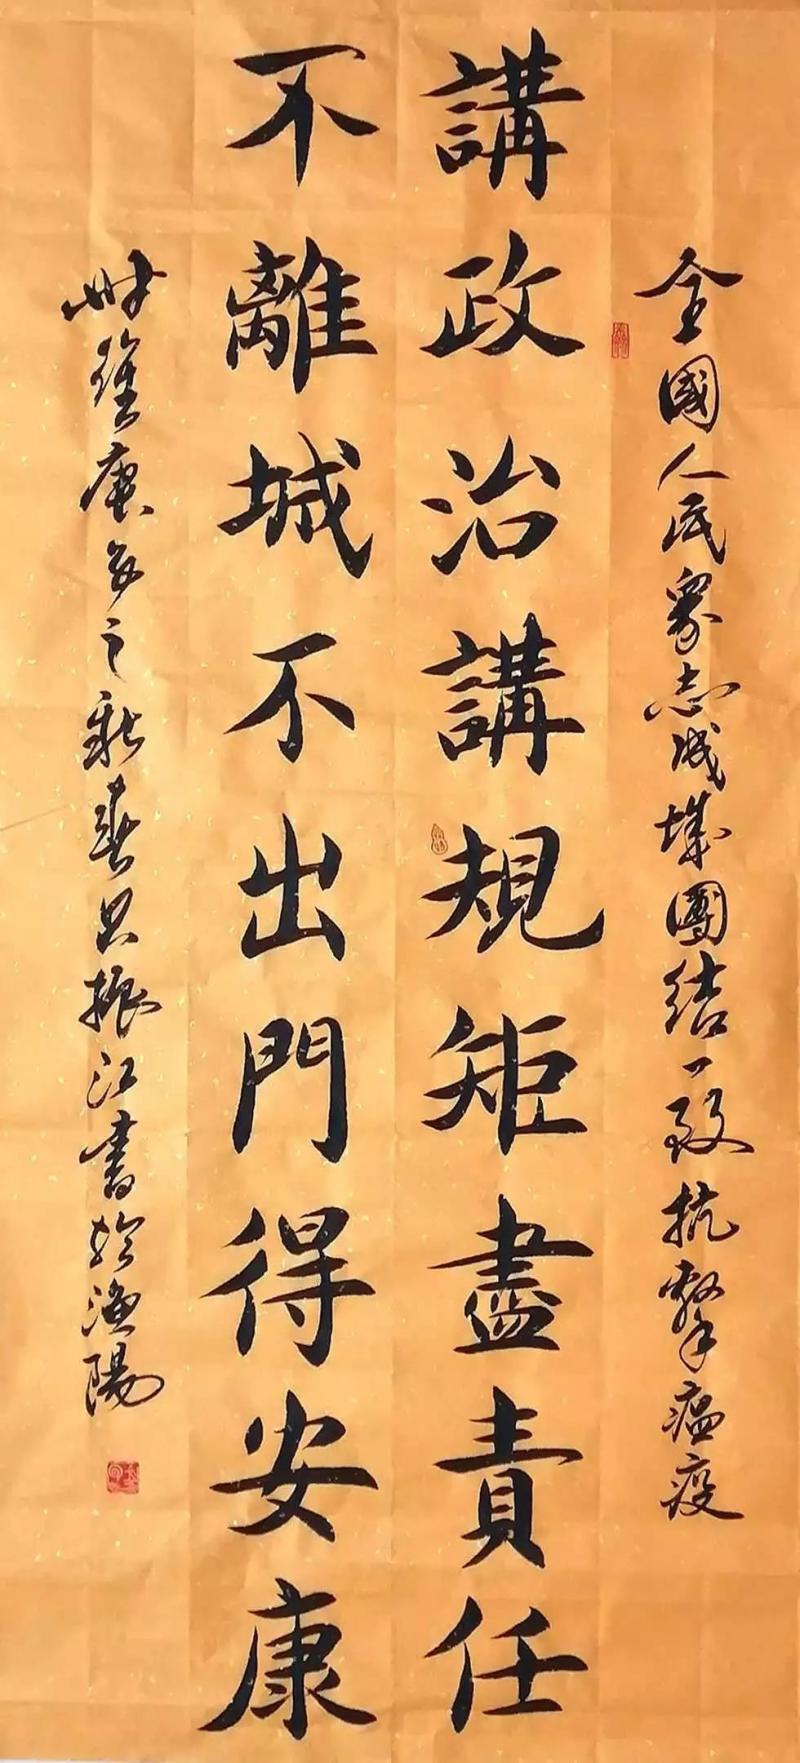 全國人民衆志成城團結一致抗擊瘟疫
講政治講規矩盡責任
不離城不出門得安康
時庚子之新春呂振江書於漁陽